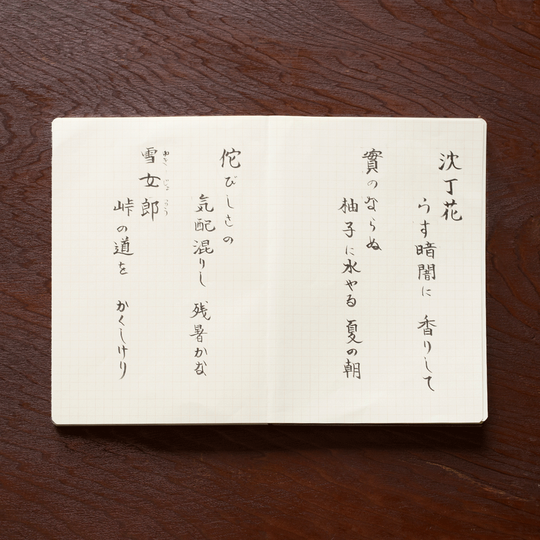 沈丁花
うす暗闇に 香りして
實のならぬ
柚子に水やる 夏の朝
佗びしさの
気配混りし 残暑かな
雪女郎
ゆき じょ ろう
峠の道を かくしけり